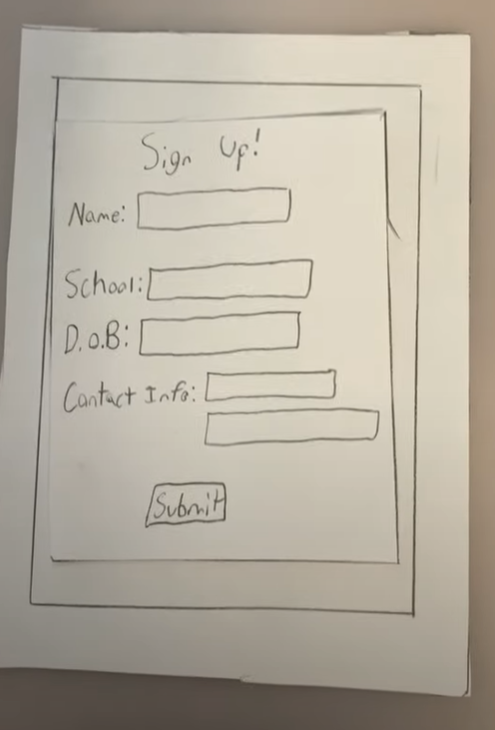 Sign Up!
Name:
School:
D.o.B:
Contact Info:
Submit